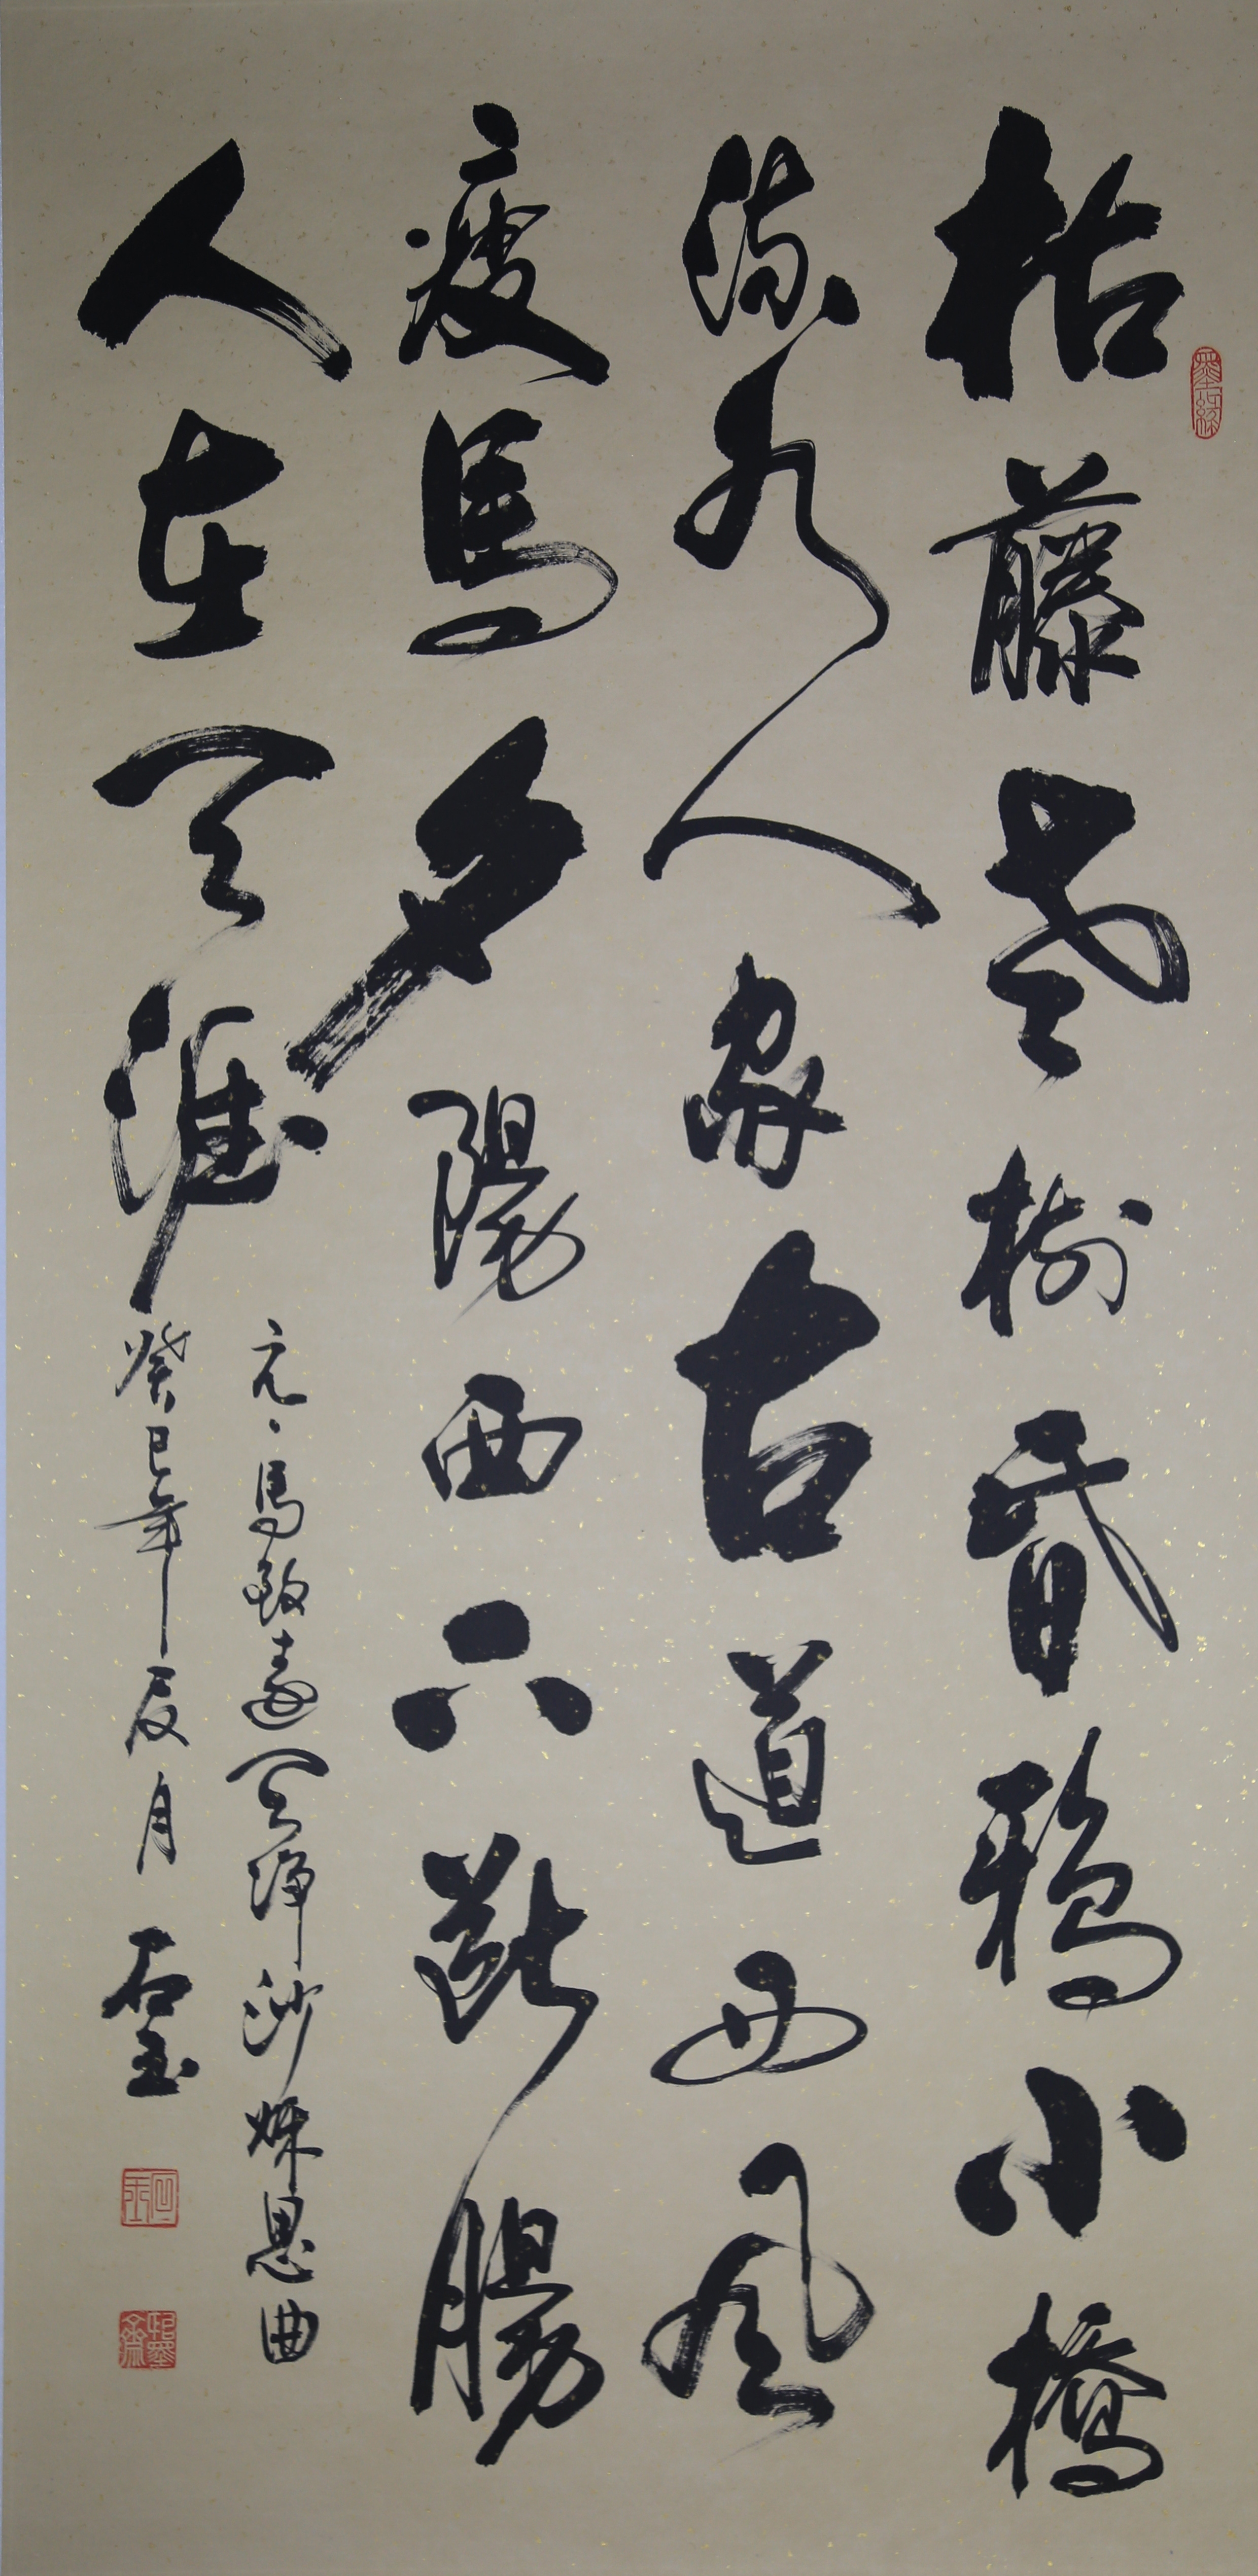 枯藤老樹昏鴉小橋
流水人家古道西風
瘦馬夕陽西下斷腸
人在天涯
元、馬致遠天淨沙秋思曲
癸巳年辰月 石玉